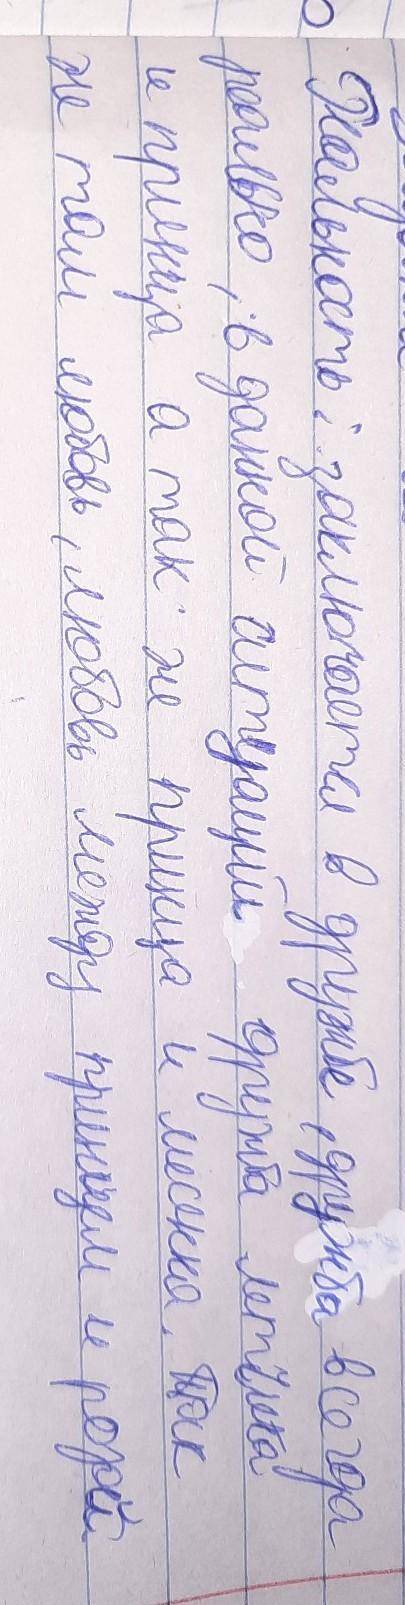 Реальность: заключается в дружбе, дружба всегда
реально, в данной ситуаций дружба летчика
и принца а так же принца и лисенка. Так
же там любовь, любовь между принцем и розой